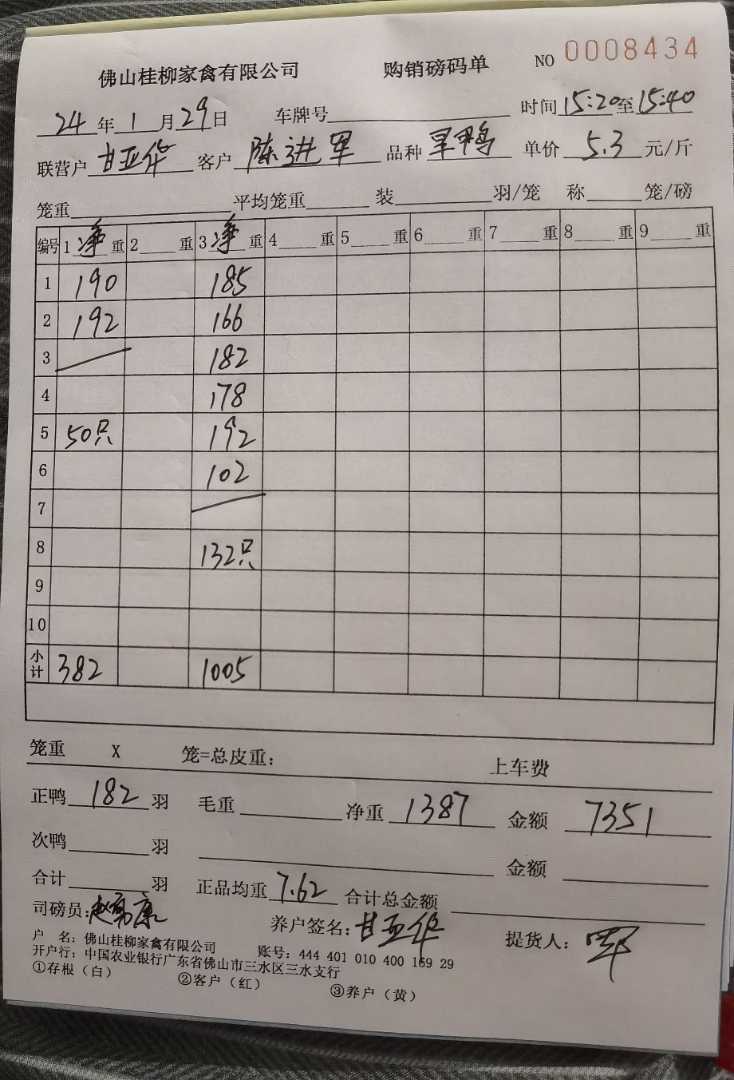 佛山桂柳家禽有限公司 购销磅码单 NO 0008434
24年1月29日 车牌号 时间15:20至15:40
联营户 甘亚华 客户 陈进军 品种 旱鸭 单价 5.3 元/斤
笼重 平均笼重 装 羽/笼 称 笼/磅
编号 1净重 2 重 3净重 4 重 5 重 6 重 7 重 8 重 9 重
1 190 185
2 192 166
3 182
4 178
5 50只 192
6 102
7
8 132只
9
10
小计 382 1005
笼重 X 笼=总皮重: 上车费
正鸭 182 羽 毛重 净重 1387 金额 7351
次鸭 羽 金额
合计 羽 正品均重 7.62 合计总金额
司磅员: 养户签名:甘亚华 提货人: 军
户 名: 佛山桂柳家禽有限公司 账号: 444 401 010 400 169 29
开户行: 中国农业银行广东省佛山市三水区三水支行
①存根(白) ②客户(红) ③养户(黄)